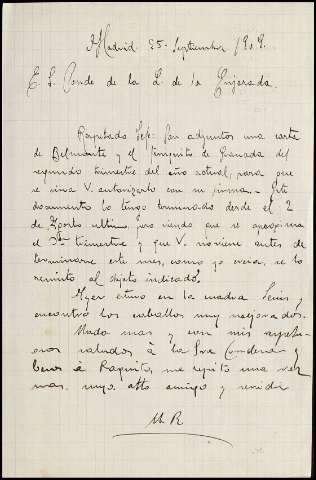 Madrid 25 Septiembre 1909.
E. S. Conde de la P. de la Enjarada.
Respetado Jefe: Son adjuntos una carta
de Belmonte y el finiquito de Granada del
segundo trimestre del año actual, para que
se sirva V. autorizarlo con su firma. - Este
documento lo tengo terminado desde el 2
de Agosto ultimo, pero viendo que se aproxima
el 3er trimestre y que V. no viene antes de
terminarse este mes, como yo creia, se lo
remito al objeto indicado.
Ayer estuve en la
encontré los caballos muy mejorados.
Nada mas y con mis respetu-
osos saludos á la Sra Condesa y
besos á Paquito, me repito una vez
mas suyo atto amigo y servidor
M R